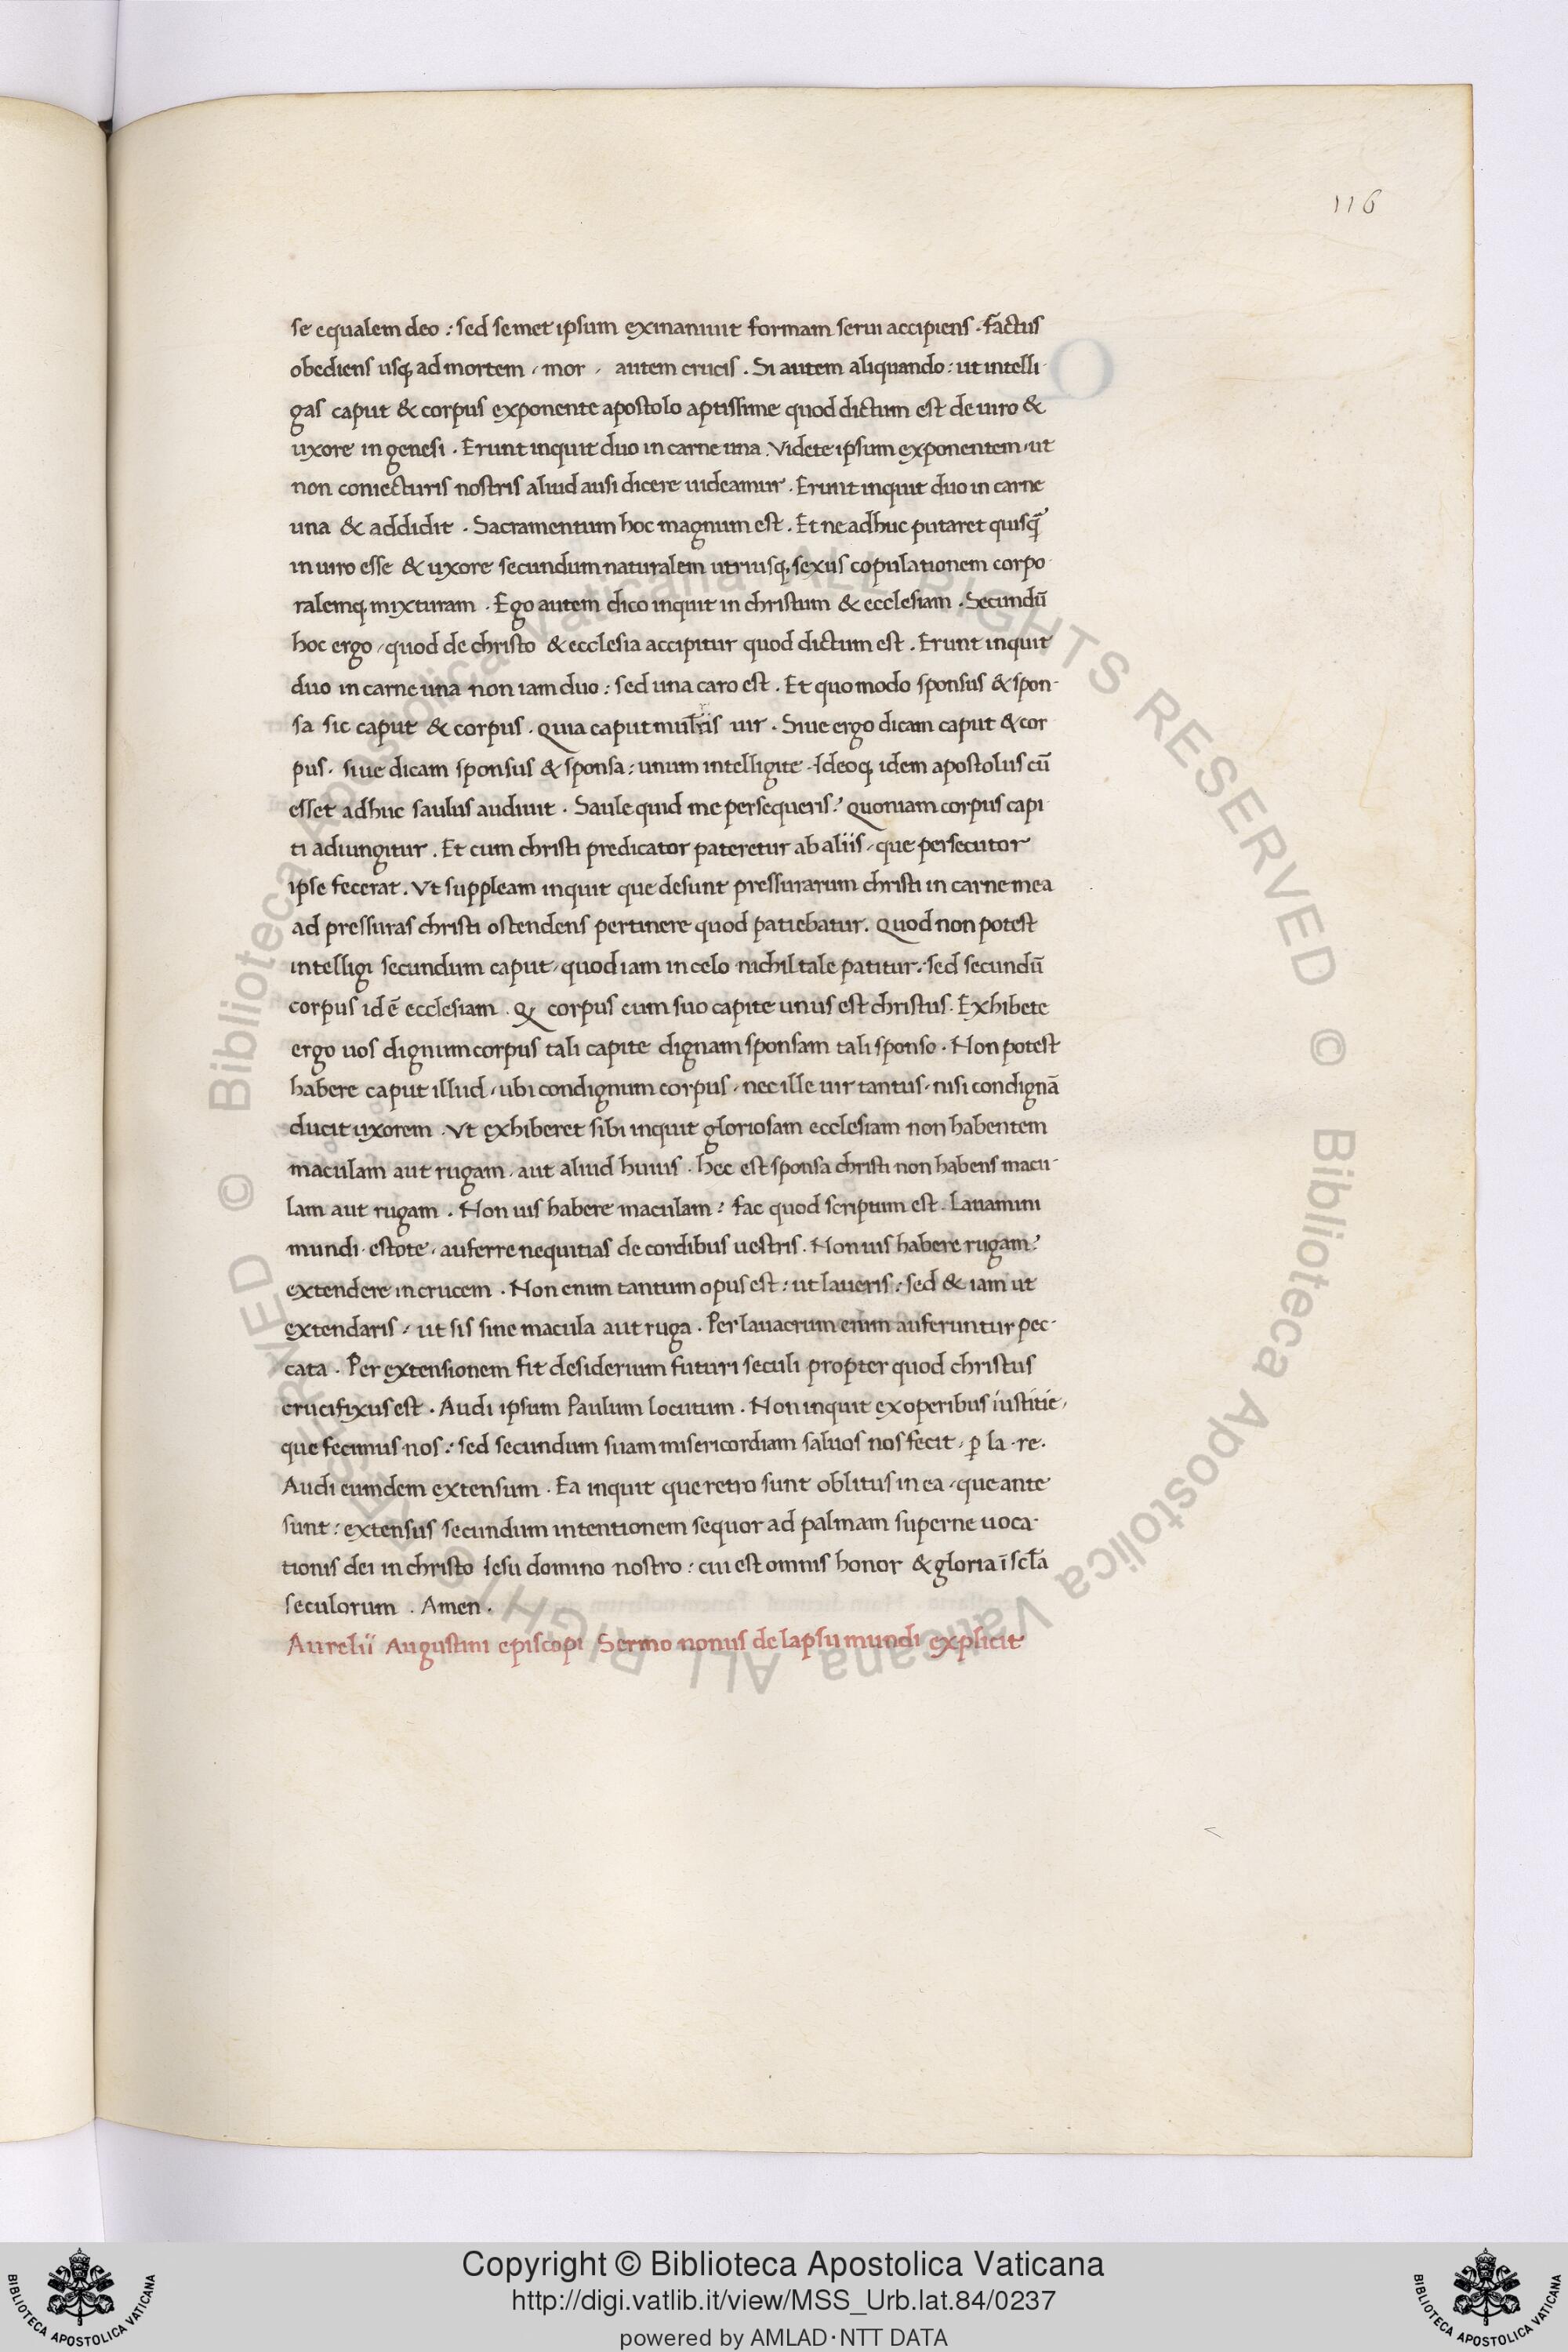 116
se equalem deo : sed semet ipsum exinaniuit formam serui accipiens . fac̄tus
obediens usq; ad mortem , mor , autem crucis . Si autem aliquando : ut intelli
gas caput & corpus exponente apostolo aptissime quod dictum est de uiro &
uxore in genesi . Erunt inquit duo in carne una . Videte ipsum exponentem , ut
non coniecturis nostris aliud ausi dicere uideamur . Erunt inquit duo in carne
una & addidit . Sacramentum hoc magnum est . Et ne adhuc putaret quisq̃
in uiro esse & uxore secundum naturalem utriusq; sexus copulationem corpo
ralemq; mixturam . Ego autem dico inquit in christum & ecclesiam . Secundū
hoc ergo , quod de christo & ecclesia accipitur quod dictum est . Erunt inquit
duo in carne una non iam duo : sed una caro est . Et quo modo sponsus & spon-
sa sic caput & corpus . Quia caput mulieris uir . Siue ergo dicam caput & cor
pus . siue dicam sponsus & sponsa : unum intelligite . Ideoq; idem apostolus cū
esset adhuc saulus audiuit . Saule quid me persequeris ? Quoniam corpus capi
ti adiungitur . Et cum christi predicator pateretur ab aliis , que persecutor
ipse fecerat . Vt suppleam inquit que desunt pressurarum christi in carne mea
ad pressuras christi ostendens pertinere quod patiebatur . Quod non potest
intelligi secundum caput , quod iam in celo nichil tale patitur : sed secundū
corpus id ē ecclesiam . Q; corpus cum suo capite unus est christus . Exhibete
ergo uos dignum corpus tali capite dignam sponsam tali sponso . Non potest
habere caput illud , ubi condignum corpus , nec ille uir tantus , nisi condignā
ducit uxorem . Vt exhiberet sibi inquit gloriosam ecclesiam non habentem
maculam aut rugam , aut aliud huius . Hec est sponsa christi non habens macu-
lam aut rugam . Non uis habere maculam ? fac quod scriptum est . Lauamini
mundi estote , auferre nequitias de cordibus uestris . Non uis habere rugam ?
extendere in crucem . Non enim tantum opus est : ut laueris : sed & iam ut
extendaris , ut sis sine macula aut ruga . Per lauacrum enim auferuntur pec-
cata . Per extensionem fit desiderium futuri seculi propter quod christus
crucifixus est . Audi ipsum Paulum locutum . Non inquit ex operibus iustitie ,
que fecimus nos : sed secundum suam misericordiam saluos nos fecit , ꝑ la . re .
Audi eumdem extensum . Ea inquit que retro sunt oblitus in ea , que ante
sunt : extensus secundum intentionem sequor ad palmam superne uoca-
tionis dei in christo Iesu domino nostro : cui est omnis honor & gloria ī scl̄a
seculorum . Amen .
Aurelii Augustini episcopi Sermo nonus de lapsu mundi explicit
© Biblioteca Apostolica Vaticana ALL RIGHTS RESERVED © Biblioteca Apostolica Vaticana ALL RIGHTS RESERVED
Copyright © Biblioteca Apostolica Vaticana
http://digi.vatlib.it/view/MSS_Urb.lat.84/0237
powered by AMLAD·NTT DATA
BIBLIOTECA APOSTOLICA VATICANA
BIBLIOTECA APOSTOLICA VATICANA